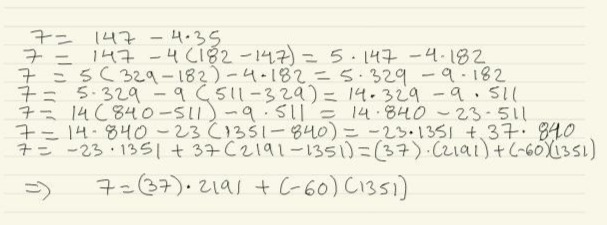 7 = 147 - 4·35
7 = 147 - 4(182 - 147) = 5·147 - 4·182
7 = 5(329 - 182) - 4·182 = 5·329 - 9·182
7 = 5·329 - 9(511 - 329) = 14·329 - 9·511
7 = 14(840 - 511) - 9·511 = 14·840 - 23·511
7 = 14·840 - 23(1351 - 840) = -23·1351 + 37·840
7 = -23·1351 + 37(2191 - 1351) = (37)·(2191) + (-60)(1351)
⇒ 7 = (37)·2191 + (-60)(1351)